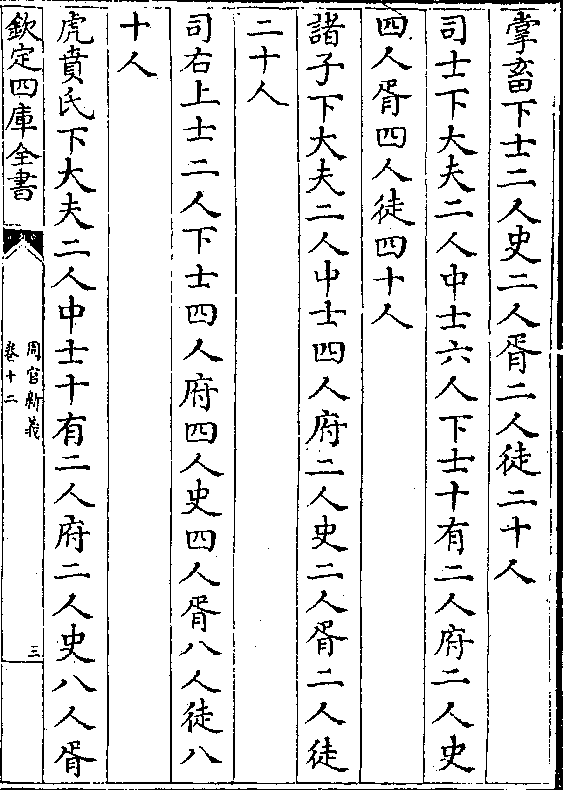 掌畜下士二人史二人胥二人徒二十人
司士下大夫二人中士六人下士十有二人府二人史
四人胥四人徒四十人
諸子下大夫二人中士四人府二人史二人胥二人徒
二十人
司右上士二人下士四人府四人史四人胥八人徒八
十人
虎賁氏下大夫二人中士十有二人府二人史八人胥
欽定四庫全書
周官新義
卷十二
三